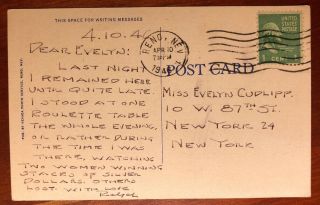 THIS SPACE FOR WRITING MESSAGES
4.10.4
DEAR EVELYN:
LAST NIGHT
I REMAINED HERE
UNTIL QUITE LATE.
I STOOD AT ONE
ROULETTE TABLE
THE WHOLE EVENING,
OR RATHER DURING
THE TIME I WAS
THERE, WATCHING
TWO WOMEN WINNING
STACKS OF SILVER
DOLLARS. OTHERS
LOST. WITH LOVE
RENO, NEV.
APR 10
POST CARD
UNITED STATES POSTAGE
1 CENT
MISS EVELYN CUDLIPP.
10 W. 87TH ST.
NEW YORK 24
NEW YORK